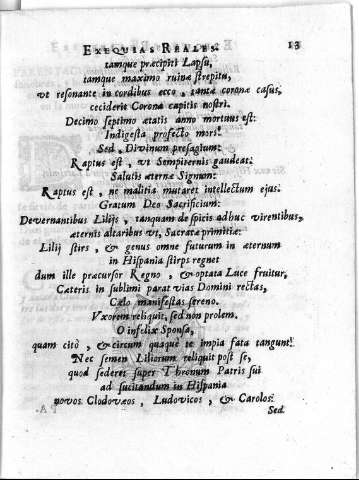 EXEQUIAS REALES. 13
tamque præcipiti Lapsu,
tamque maximo ruinæ strepitu,
vt resonante in cordibus ecco, tantæ coronæ casus,
ceciderit Corona capitis nostri.
Decimo septimo ætatis anno mortuus est:
Indigesta profecto mors!
Sed, Divinum presagium:
Raptus est, vt Sempiternis gaudeat:
Salutis æternæ Signum:
Raptus est, ne malitia mutaret intellectum ejus:
Gratum Deo Sacrificium:
De vernantibus Lilijs, tanquam de spicis adhuc virentibus,
æternis altaribus vt, Sacratæ primitiæ:
Lilij stirs, & genus omne futurum in æternum
in Hispania stirps regnet
dum ille præcursor Regno, & optata Luce fruitur,
Cæteris in sublimi parat vias Domini rectas,
Cælo manifestas sereno.
Vxorem reliquit, sed non prolem.
O infelix Sponsa,
quam citò, & circum quaque te impia fata tangunt!
Nec semen Liliorum reliquit post se,
quod sederet super Thronum Patris sui
ad sucitandum in Hispania
novos Clodovæos, Ludovicos, & Carolos:
Sed